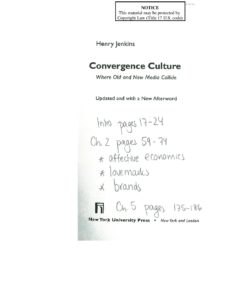 NOTICE
This material may be protected by
Copyright Law (Title 17 U.S. code)
Henry Jenkins
Convergence Culture
Where Old and New Media Collide
Updated and with a New Afterword
Intro pages 17-24
Ch. 2 pages 59-74
* affective economics
* lovemarks
* brands
Ch 5 pages 175-186
New York University Press • New York and London